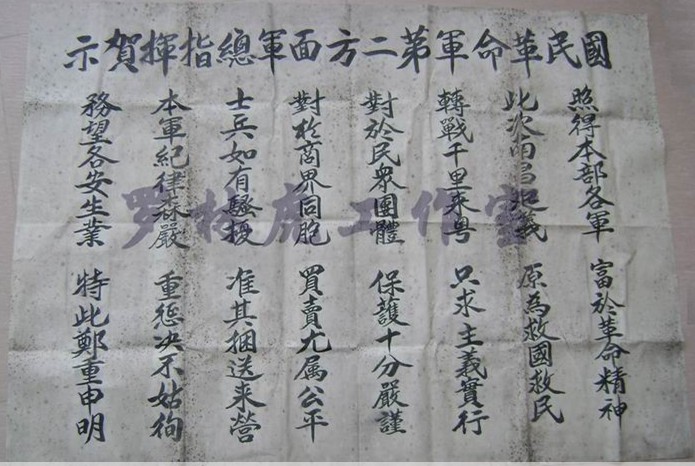 國民革命軍第二方面軍總指揮賀示
照得本部各軍 富於革命精神
此次南昌起義 原為救國救民
轉戰千里來粵 只求主義實行
對於民衆團體 保護十分嚴謹
對於商界同胞 買賣尤属公平
士兵如有騷擾 准其捆送來營
本軍紀律森嚴 重惩决不姑徇
務望各安生業 特此鄭重申明
工作室